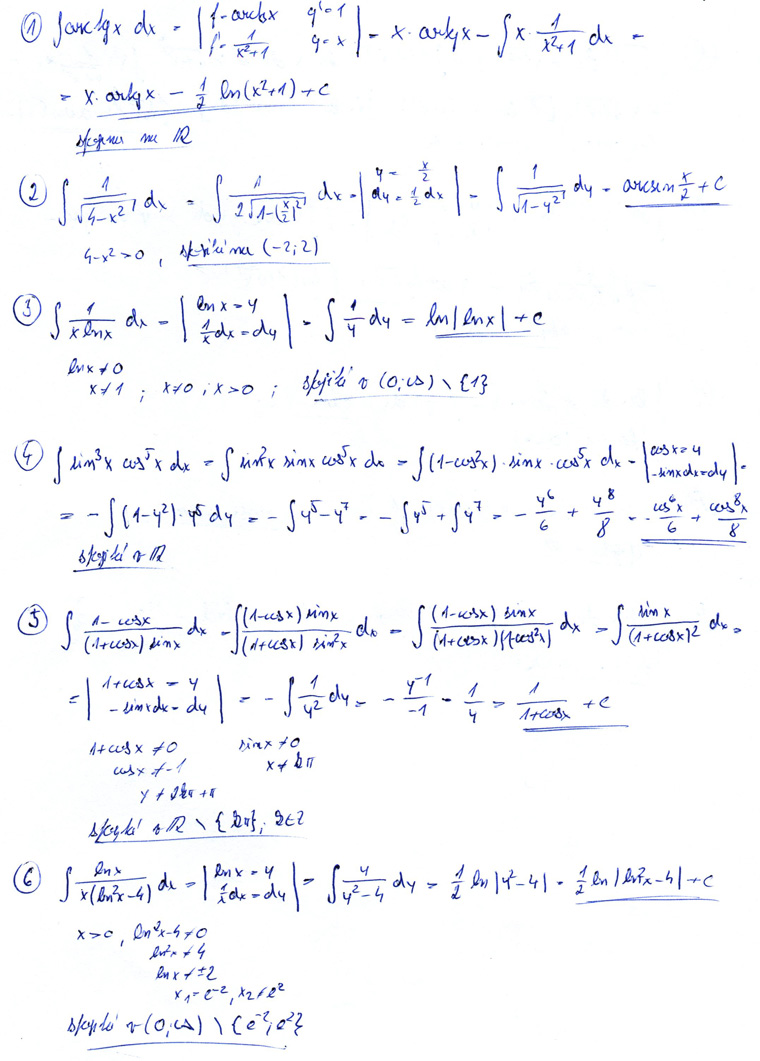 ① ∫ arctg x dx = | f = arctg x   g' = 1 | f' = 1/(x²+1)   g = x | = x · arctg x − ∫ x · 1/(x²+1) dx =
= x · arctg x − 1/2 ln(x²+1) + c
na ℝ
② ∫ 1/√(4−x²) dx = ∫ 1/(2√(1−(x/2)²)) dx = | y = x/2 | dy = 1/2 dx | = ∫ 1/√(1−y²) dy = arcsin x/2 + c
4−x² > 0, spojitá na (−2; 2)
③ ∫ 1/(x ln x) dx = | ln x = y | 1/x dx = dy | = ∫ 1/y dy = ln|ln x| + c
ln x ≠ 0
x ≠ 1 ; x ≠ 0 ; x > 0 ; spojitá v (0; ∞) \ {1}
④ ∫ sin³x cos⁵x dx = ∫ sin²x sin x cos⁵x dx = ∫ (1−cos²x) · sin x · cos⁵x dx = | cos x = y | −sin x dx = dy | =
= − ∫ (1−y²) · y⁵ dy = − ∫ y⁵ − y⁷ = − ∫ y⁵ + ∫ y⁷ = − y⁶/6 + y⁸/8 = − cos⁶x/6 + cos⁸x/8
spojitá v ℝ
⑤ ∫ (1−cos x)/((1+cos x) sin x) dx = ∫ ((1−cos x) sin x)/((1+cos x) sin²x) dx = ∫ ((1−cos x) sin x)/((1+cos x)(1−cos²x)) dx = ∫ sin x/(1+cos x)² dx =
= | 1+cos x = y | −sin x dx = dy | = − ∫ 1/y² dy = − y⁻¹/−1 = 1/y = 1/(1+cos x) + c
1+cos x ≠ 0   sin x ≠ 0
cos x ≠ −1   x ≠ kπ
x ≠ 2kπ + π
spojitá v ℝ \ {kπ}; k∈Z
⑥ ∫ ln x/(x(ln²x−4)) dx = | ln x = y | 1/x dx = dy | = ∫ y/(y²−4) dy = 1/2 ln|y²−4| = 1/2 ln|ln²x−4| + c
x > 0, ln²x−4 ≠ 0
ln²x ≠ 4
ln x ≠ ±2
x₁ = e⁻², x₂ ≠ e²
spojitá v (0; ∞) \ {e⁻²; e²}